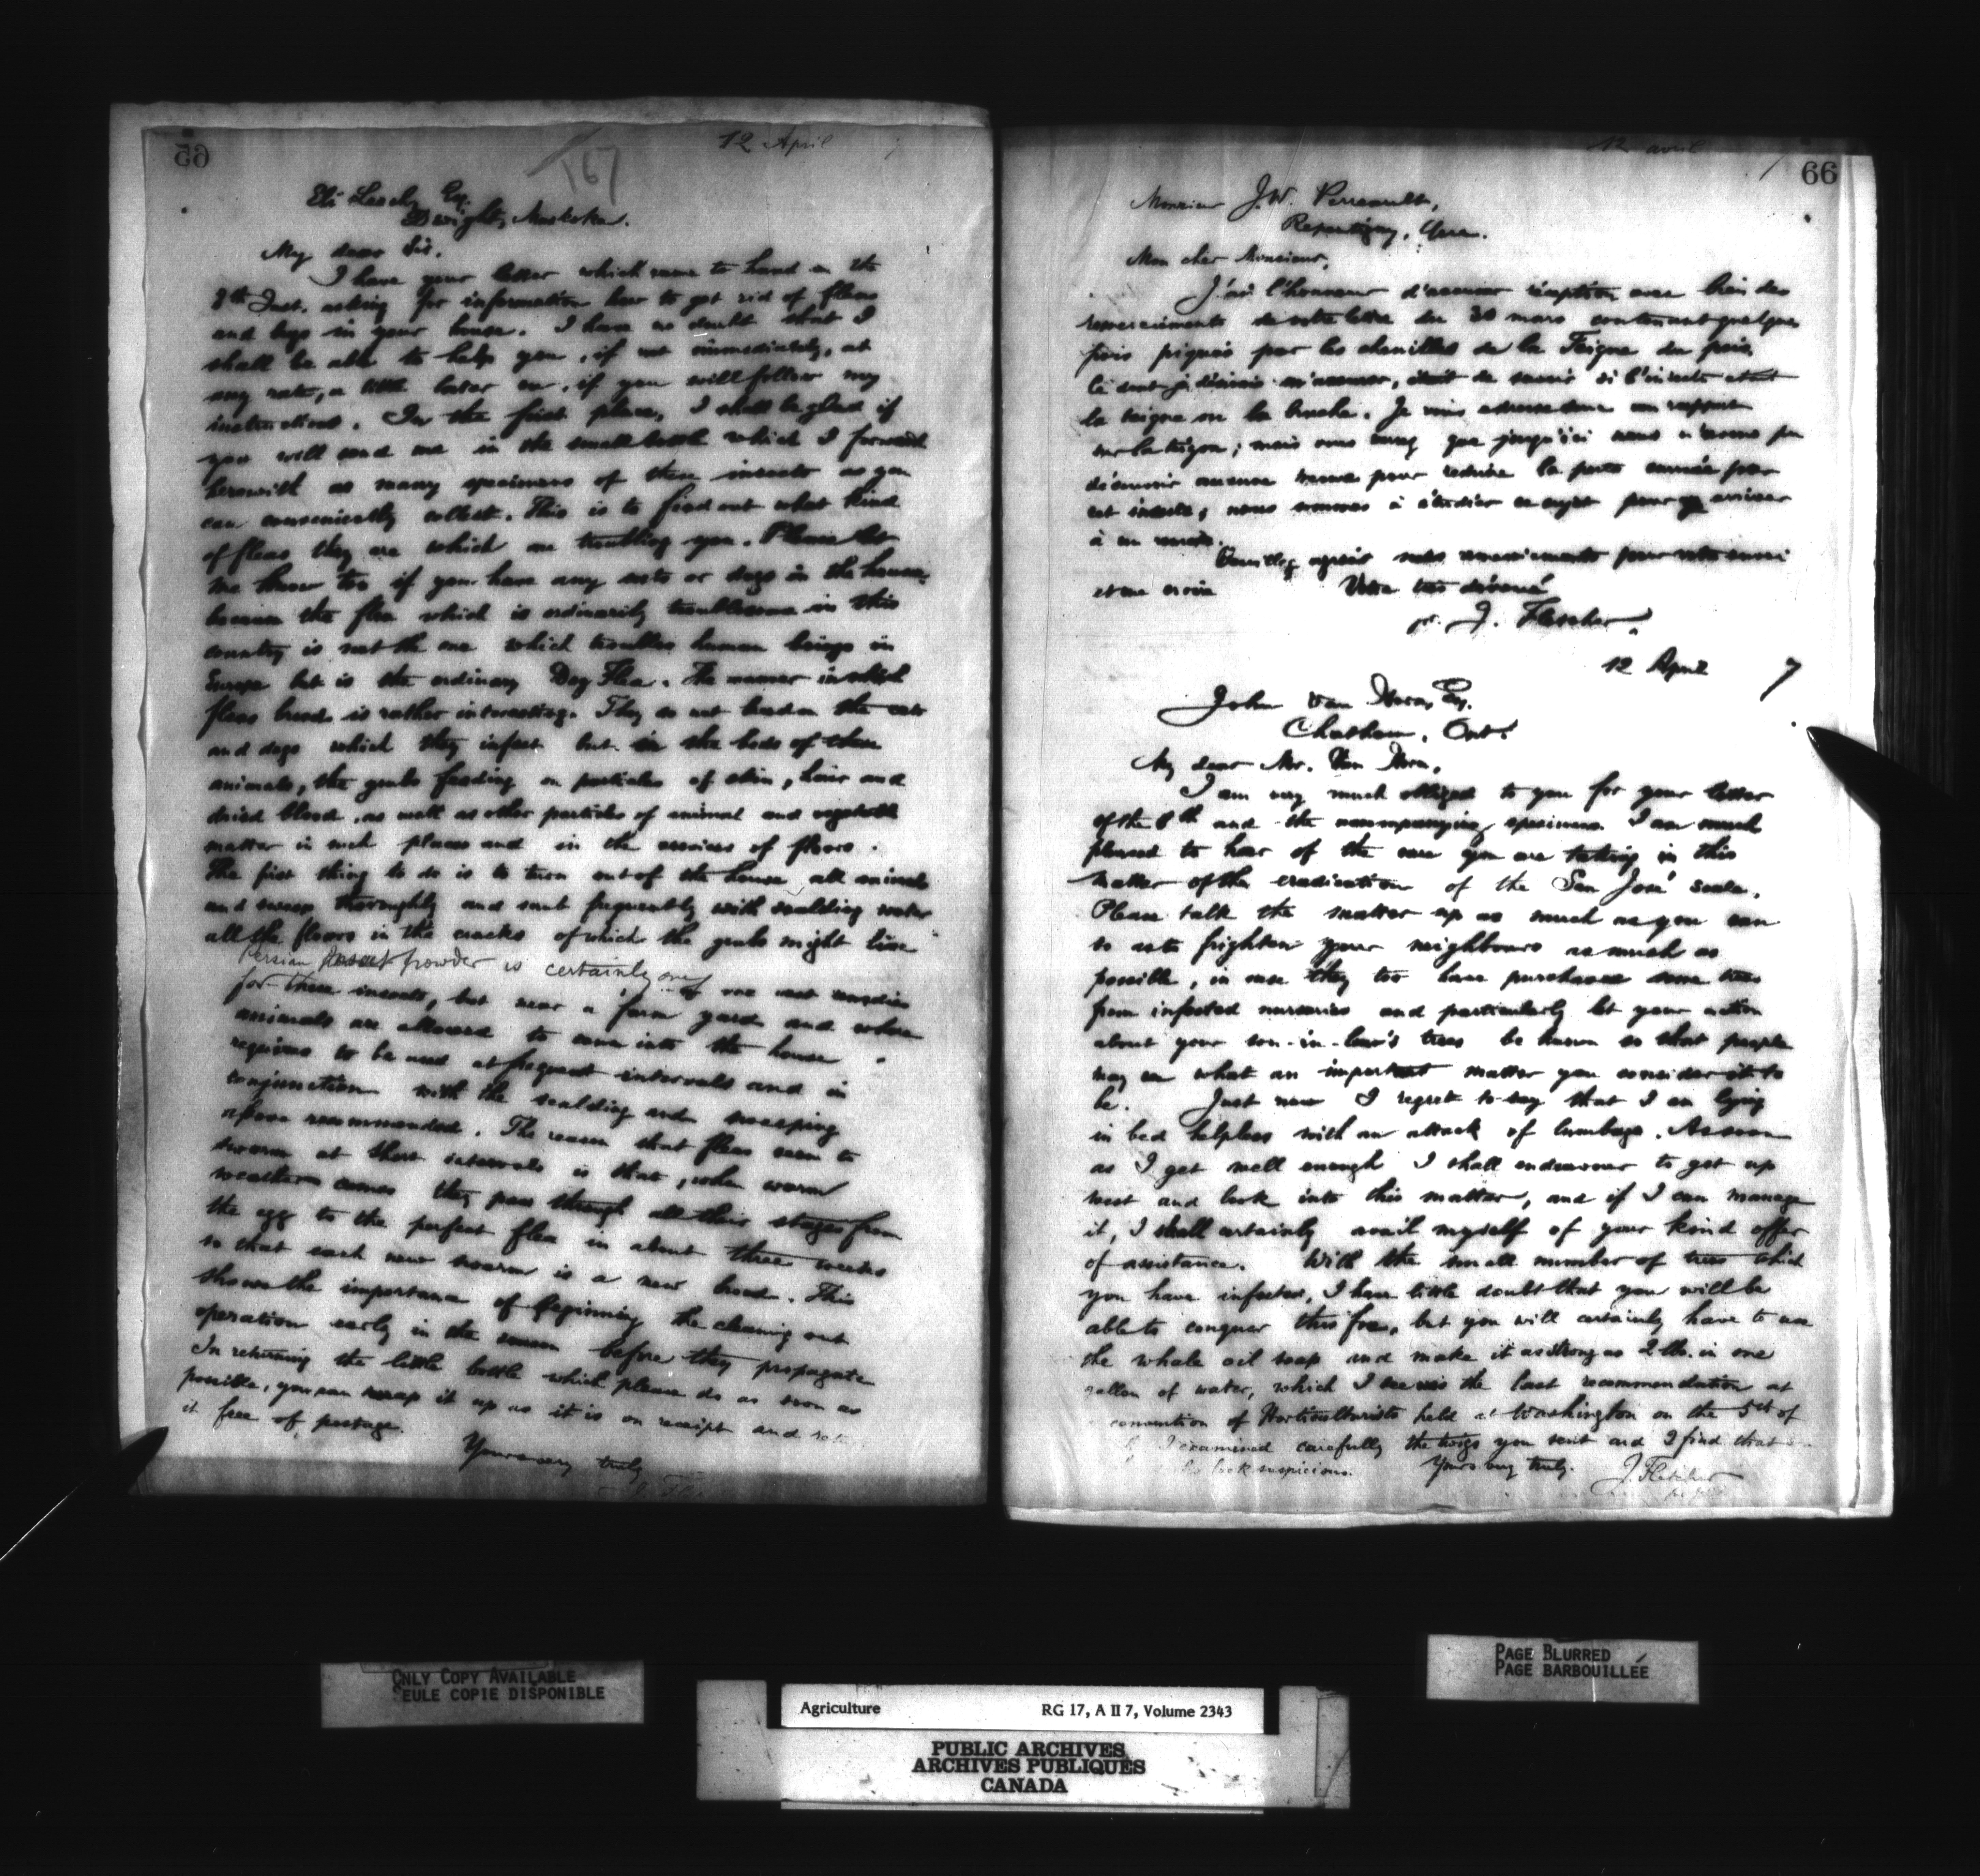 65
167
12 April
Eli Leach, Esq.
Dwight, Muskoka.
My dear Sir,
I have your letter which came to hand on the
9th Inst. asking for information how to get rid of fleas
and bugs in your house. I have no doubt that I
shall be able to help you, if not immediately, at
any rate, a little later on, if you will follow my
instructions. In the first place, I shall be glad if
you will send me in the small bottle which I forward
herewith as many specimens of these insects as you
can conveniently collect. This is to find out what kind
of fleas they are which are troubling you. Please let
me know too if you have any cats or dogs in the house,
because the flea which is ordinarily troublesome in this
country is not the one which troubles human beings in
Europe but is the ordinary Dog Flea. The manner in which
fleas breed is rather interesting. They do not breed on the cats
and dogs which they infest but in the beds of these
animals, the grubs feeding on particles of skin, hair and
dried blood, as well as other particles of animal and vegetable
matter in such places and in the crevices of floors.
The first thing to do is to turn out of the house all animals
and sweep thoroughly and soak frequently with scalding water
all the floors in the cracks of which the grubs might live
Persian Insect powder is certainly one of our best remedies
for these insects, but near a farm yard and where
animals are allowed to come into the house
requires to be used at frequent intervals and in
conjunction with the scalding and sweeping
above recommended. The reason that fleas seem to
swarm at short intervals is that, when warm
weather comes they pass through all their stages from
the egg to the perfect flea in about three weeks
so that each new swarm is a new brood. This
shows the importance of beginning the cleaning out
operation early in the season before they propagate
In returning the little bottle which please do as soon as
possible, you can wrap it up as it is on receipt and
it free of postage.
Yours very truly
12 avril
66
Monsieur J.W. Perreault,
Repentigny, Quee.
Mon cher Monsieur,
J'ai l'honneur d'accuser réception avec bien des
remerciments de votre lettre du 30 mars contenant quelques
pois piqués par les chenilles de la Teigne du pois,
ce dont je désirais m'assurer, était de savoir si l'insecte etait
la teigne ou la bruche. Je vous adresse un rapport
sur la teigne; mais vous que jusqu'ici nous n'avons pu
découvrir aucune pour reduire la perte causée par
cet insecte; nous sommes à étudier ce sujet pour arriver
à un
Veuillez agréer mes remerciements pour votre envoi
et me croire Votre tout dévoué
pr. J. Fletcher.
12 April 7
John Van Horn, Esq.
Chatham, Ont.
My dear Mr. Van Horn,
I am very much obliged to you for your letter
of the 8th and the accompanying specimens. I am much
pleased to hear of the care you are taking in this
matter of the eradication of the San José scale.
Please talk the matter up as much as you can
so as to frighten your neighbours as much as
possible, in case they too have purchased some trees
from infested nurseries and particularly let your action
about your son-in-law's trees be known so that people
may see what an important matter you consider it to
be. Just now I regret to say that I am lying
in bed helpless with an attack of lumbago. As soon
as I get well enough I shall endeavour to get up
west and look into this matter, and if I can manage
it, I shall certainly avail myself of your kind offer
of assistance. With the small number of trees which
you have infested, I have little doubt that you will be
able to conquer this foe, but you will certainly have to use
the whale oil soap and make it as strong as 2 lb. in one
gallon of water, which I see was the last recommendation at
convention of Horticulturists held at Washington on the 5th of
I examined carefully the twigs you sent and I find that
look suspicious. Yours very truly.
J. Fletcher
ONLY COPY AVAILABLE
SEULE COPIE DISPONIBLE
PAGE BLURRED
PAGE BARBOUILLÉE
Agriculture RG 17, A II 7, Volume 2343
PUBLIC ARCHIVES
ARCHIVES PUBLIQUES
CANADA